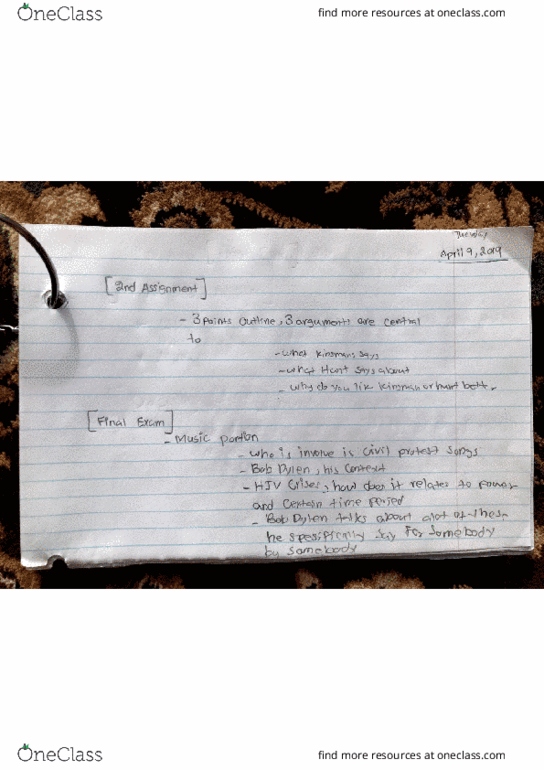 OneClass
find more resources at oneclass.com
Tuesday
April 9, 2019
[2nd Assignment]
- 3 Points outline, 3 arguments are central
to
- what Kinsmans says
- what Hurst says about
- why do you like Kinsman or hurst bett
[Final Exam]
- Music portion
- who is involve is civil protest songs
- Bob Dylen, his context
- HIV Crises, how does it relates to power
and certain time period
- Bob Dylen talks about alot of
he spesifically say for somebody
by somebody
OneClass
find more resources at oneclass.com